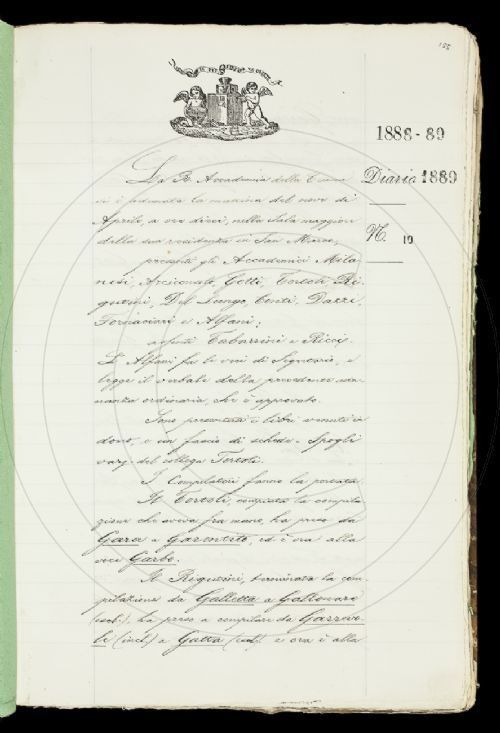 155
1888-89
Diario 1889
N. 10
La R. Accademia della Crusca
si è adunata la mattina del nove di
Aprile, a ore dieci, nella Sala maggiore
della sua residenza in San Marco,
presenti gli Accademici Mila-
nesi, Arciconsolo, Gotti, Tortoli, Ri-
gutini, Del Lungo, Conti, Dazzi,
Fornaciari et Alfani;
assenti Tabarrini e Ricci.
L'Alfani fa le veci di Segretario, e
legge il verbale della precedente adu-
nanza ordinaria, che è approvato.
Sono presentati i libri venuti in
dono, e un fascio di schede - Spogli
varj del collega Tortoli.
I Compilatori fanno la portata.
Il Tortoli, compiuta la compila-
zione che aveva fra mano, ha preso da
Gara a Garentito, ed è ora alla
voce Garbo.
Il Rigutini, terminata la com-
pilazione da Galletta a
(escl.), ha preso a compilare da Garrevo-
le (incl.) a Gatta (escl.) e ora è alla